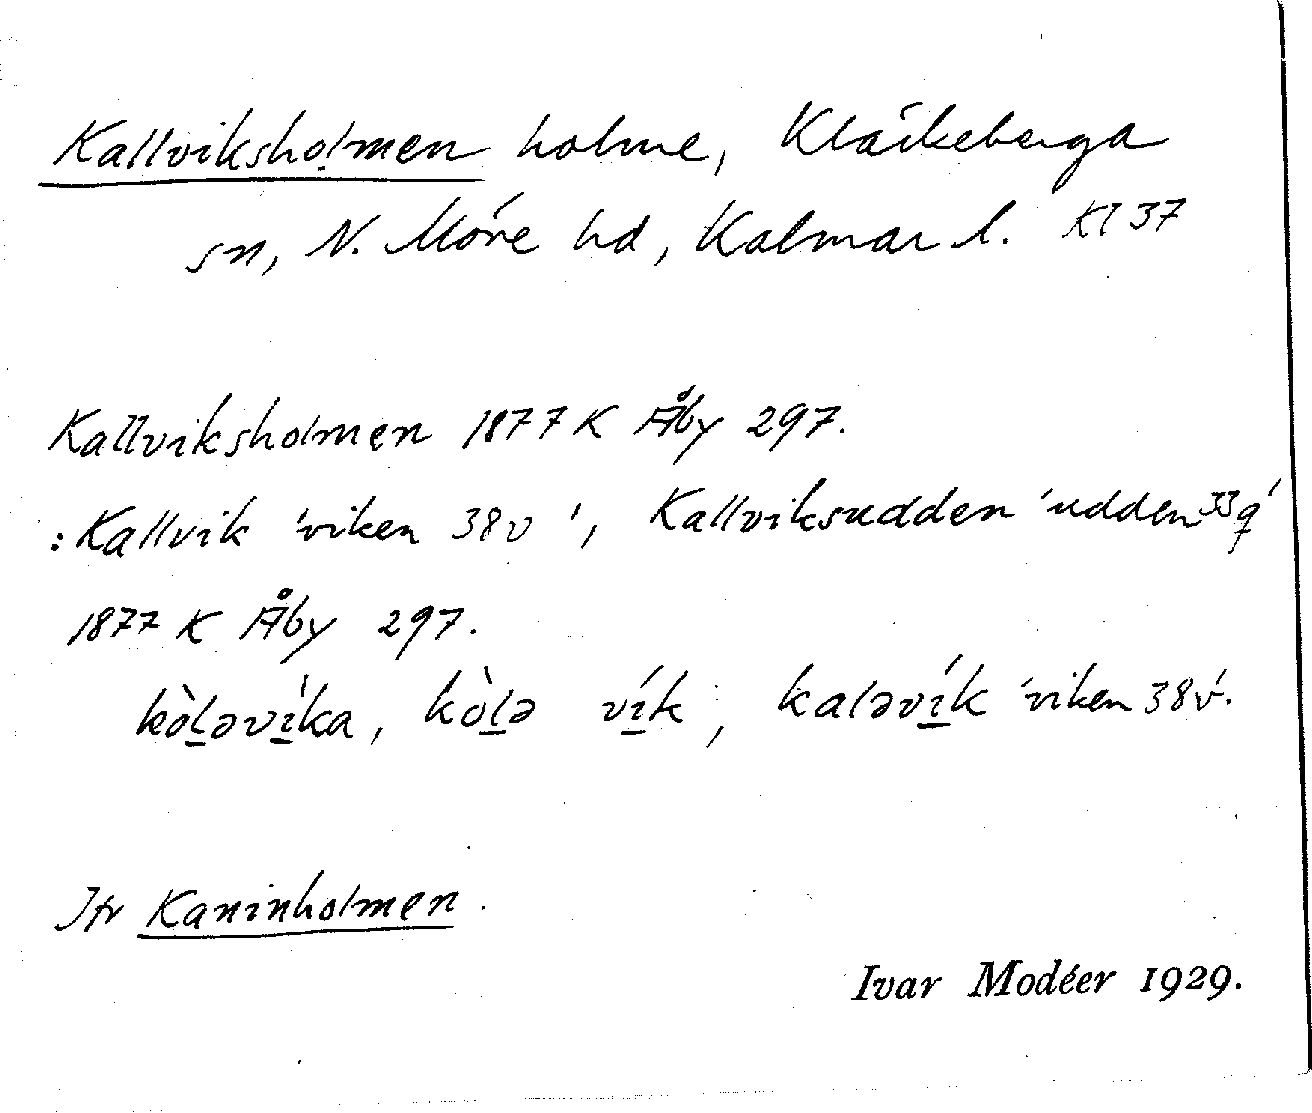 Kallviksholmen holme, Kläckeberga
sn, N. Möre hd, Kalmar l. Kl 37
Kallviksholmen 1877 K Åby 297.
: Kallvik 'viken 38v', Kallviksudden 'udden 33q'
1877 K Åby 297.
kòḻəví̱ka, kòḻə ví̱k, kaləví̱k 'viken 38v'.
Jfr Kaninholmen.
Ivar Modéer 1929.